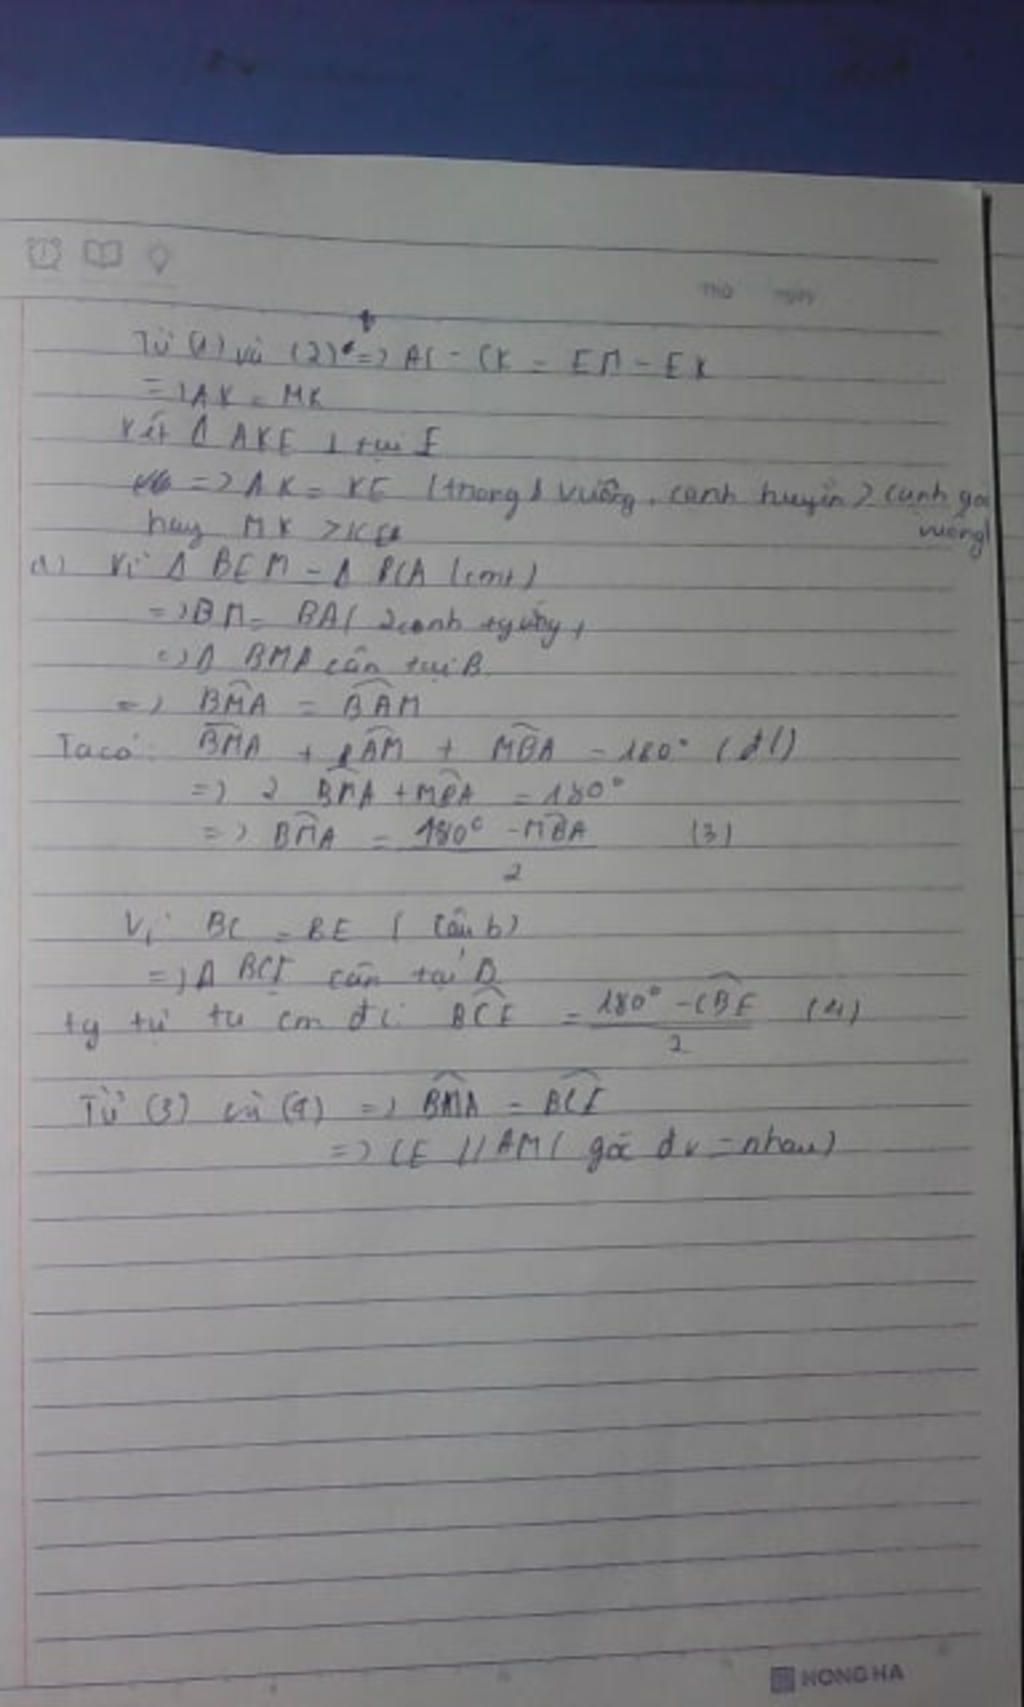 Từ (1) và (2) => AC - CK = EM - EK
=> AK = MK
Xét Δ AKE ⊥ tại E
=> AK = KE (trong Δ vuông, cạnh huyền > cạnh góc vuông)
hay MK > KE
d) Vì Δ BEM = Δ BCA (cmt)
=> BM = BA ( 2 cạnh tg ứng)
=> Δ BMA cân tại B
=> BMA = BAM
Ta có: BMA + BAM + MBA = 180° (đl)
=> 2 BMA + MBA = 180°
=> BMA = 180° - MBA (3)
2
Vì BC = BE ( câu b)
=> Δ BCE cân tại B
tg tự ta cm đc: BCE = 180° - CBE (4)
2
Từ (3) và (4) => BMA = BCE
=> CE // AM ( góc đv = nhau)
HONG HA